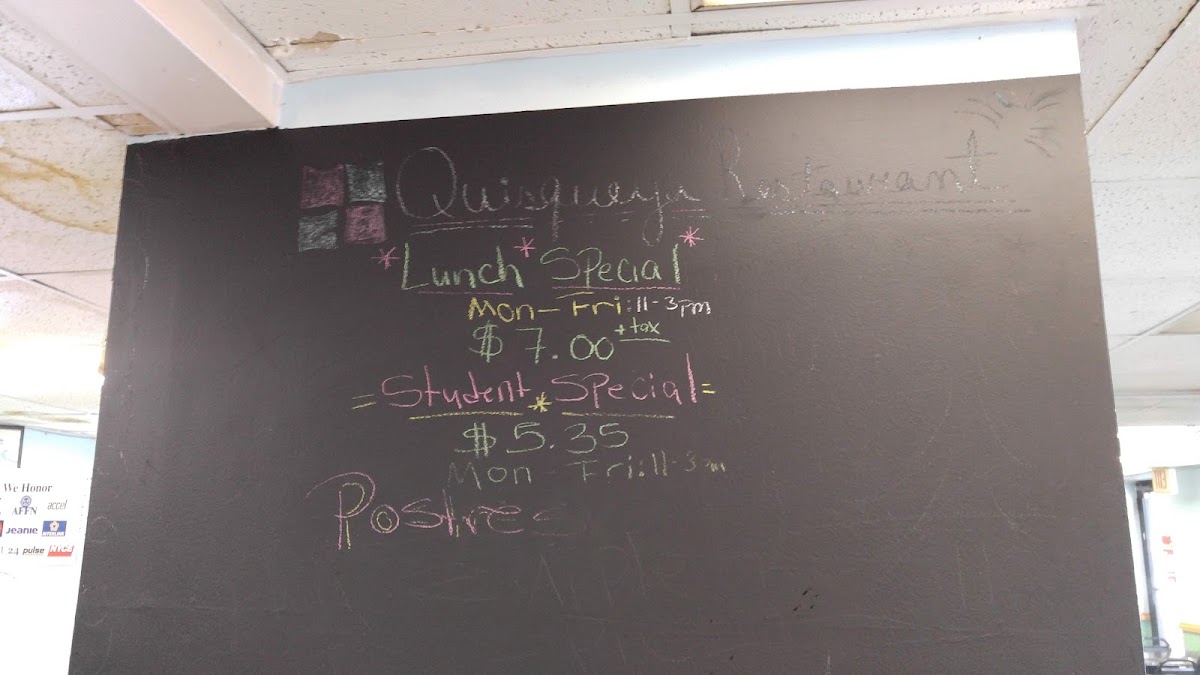 Quisqueya Restaurant
*Lunch* Special*
Mon-Fri:11-3pm
$7.00 + tax
=Student * Special=
$5.35
Mon-Fri:11-3pm
Postres
We Honor
AFFN accel
Jeanie
24 pulse NYCE